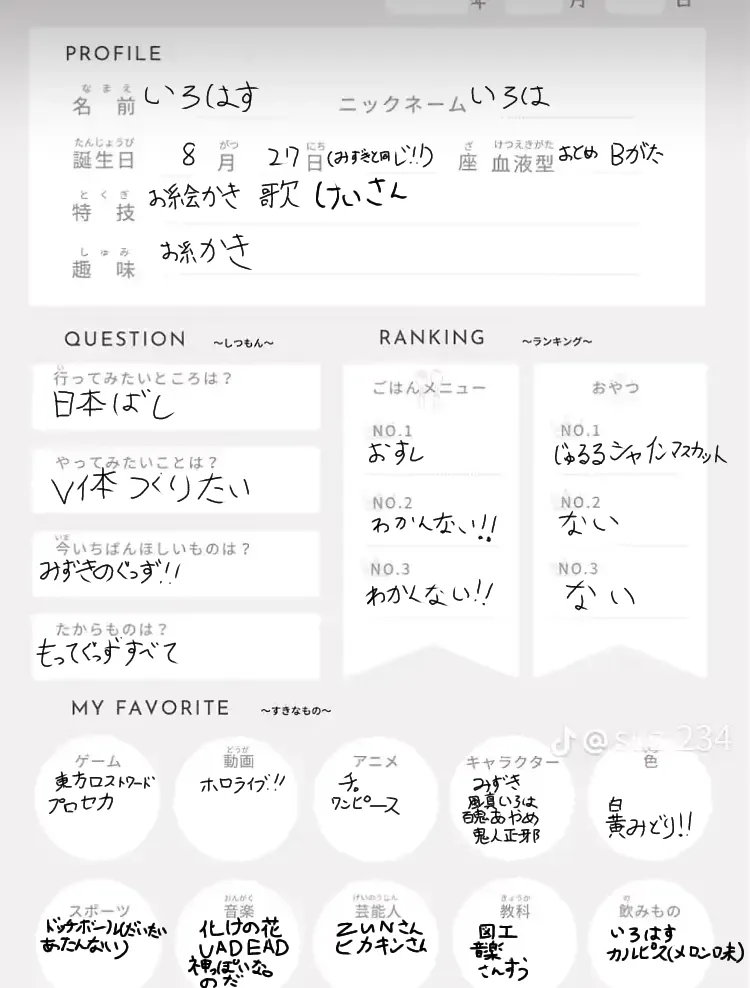 年 月 日
PROFILE
なまえ
名前 いろはす ニックネーム いろは
たんじょうび がつ にち ざ けつえきがた
誕生日 8月 27日(みずきと同じ!!) 座 血液型 おとめ Bがた
とくぎ
特技 お絵かき 歌 けいさん
しゅみ
趣味 お絵かき
QUESTION ～しつもん～
い
行ってみたいところは？
日本ばし
やってみたいことは？
Vイ本 つくりたい
いま
今いちばんほしいものは？
みずきのぐっず!!
たからものは？
もってぐっずすべて
RANKING ～ランキング～
ごはんメニュー
NO.1
おすし
NO.2
わかんない!!
NO.3
わかんない!!
おやつ
NO.1
じゅるるシャインマスカット
NO.2
ない
NO.3
ない
MY FAVORITE ～すきなもの～
ゲーム
東方ロストワード
プロセカ
どうが
動画
ホロライブ!!
アニメ
チ。
ワンピース
キャラクター
みずき
風真いろは
あやめ
鬼人正邪
色
白
黄みどり!!
スポーツ
ドッチボール(だいたい
あたんない)
おんがく
音楽
化けの花
UADEAD
神っぽいな
のだ
げいのうじん
芸能人
ZUNさん
ヒカキンさん
きょうか
教科
図工
音楽
さんすう
の
飲みもの
いろはす
カルピス(メロン味)